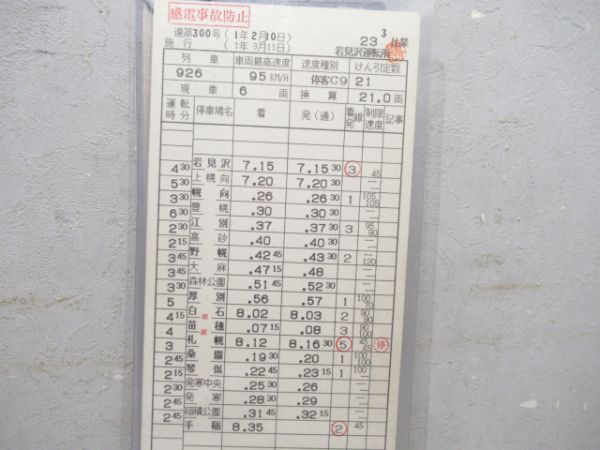 感電事故防止
達第300号(1年2月10日)
施行(1年3月11日)
3
23仕業
岩見沢運転所
列車 車両最高速度 速度種別 けん引定数
926 95KM/H 停客C9 21
現車 6両 換算 21.0両
運転時分 停車場名 着 発(通) 着発線 制限速度 記事
岩見沢 7.15 7.15 30 ③ 45
4 30 上幌向 7.20 7.20 30
5 30 幌向 .26 .26 30 1 105 105
3 30 豊幌 .30 .30 30
6 30 江別 .37 .37 30 3 95 90
2 30 高砂 .40 .40 30
2 15 野幌 .42 45 .43 30 2 120
3 45 大麻 .47 15 .48
3 45 森林公園 .51 45 .52 30
3 30 厚別 .56 .57 1 100 90
5 白石 8.02 8.03 2 90 90
4 15 苗穂 .07 15 .08 3 90 100
4 札幌 8.12 8.16 30 ⑤ 45 45 停
3 桑園 .19 30 .20 1 100 100
2 45 琴似 .22 45 .23 15 1 100
2 45 発寒中央 .25 30 .26
2 30 発寒 .28 30 .29
2 45 稲積公園 .31 45 .32 15
2 45 手稲 8.35 ② 45